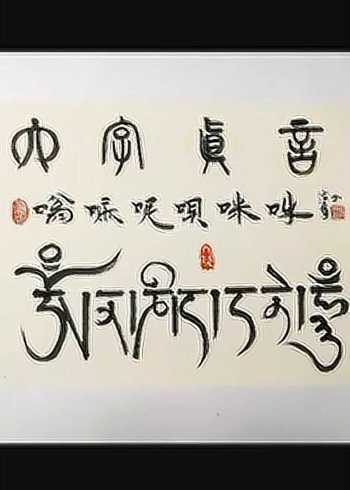 六字真言
嗡嘛呢唄咪吽
ཨོཾ་མ་ཎི་པ་ད་མེ་ཧཱུྃ